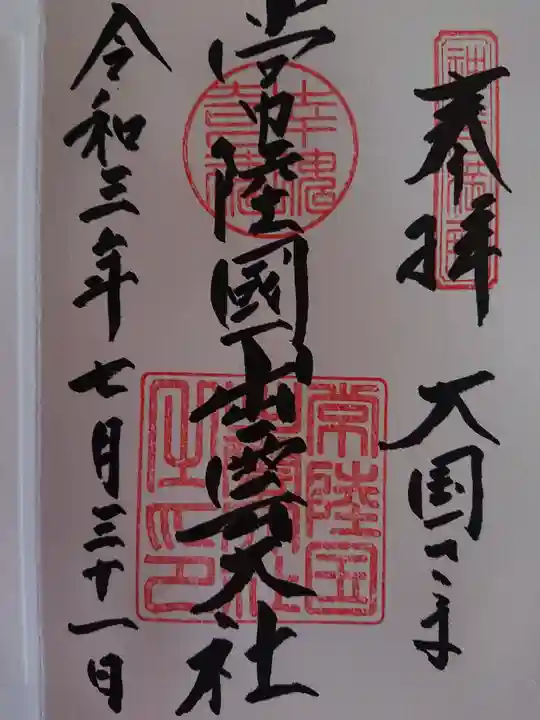 奉拝
大国さま
常陸國出雲大社
常陸国
出雲大社
之印
令和三年七月三十一日